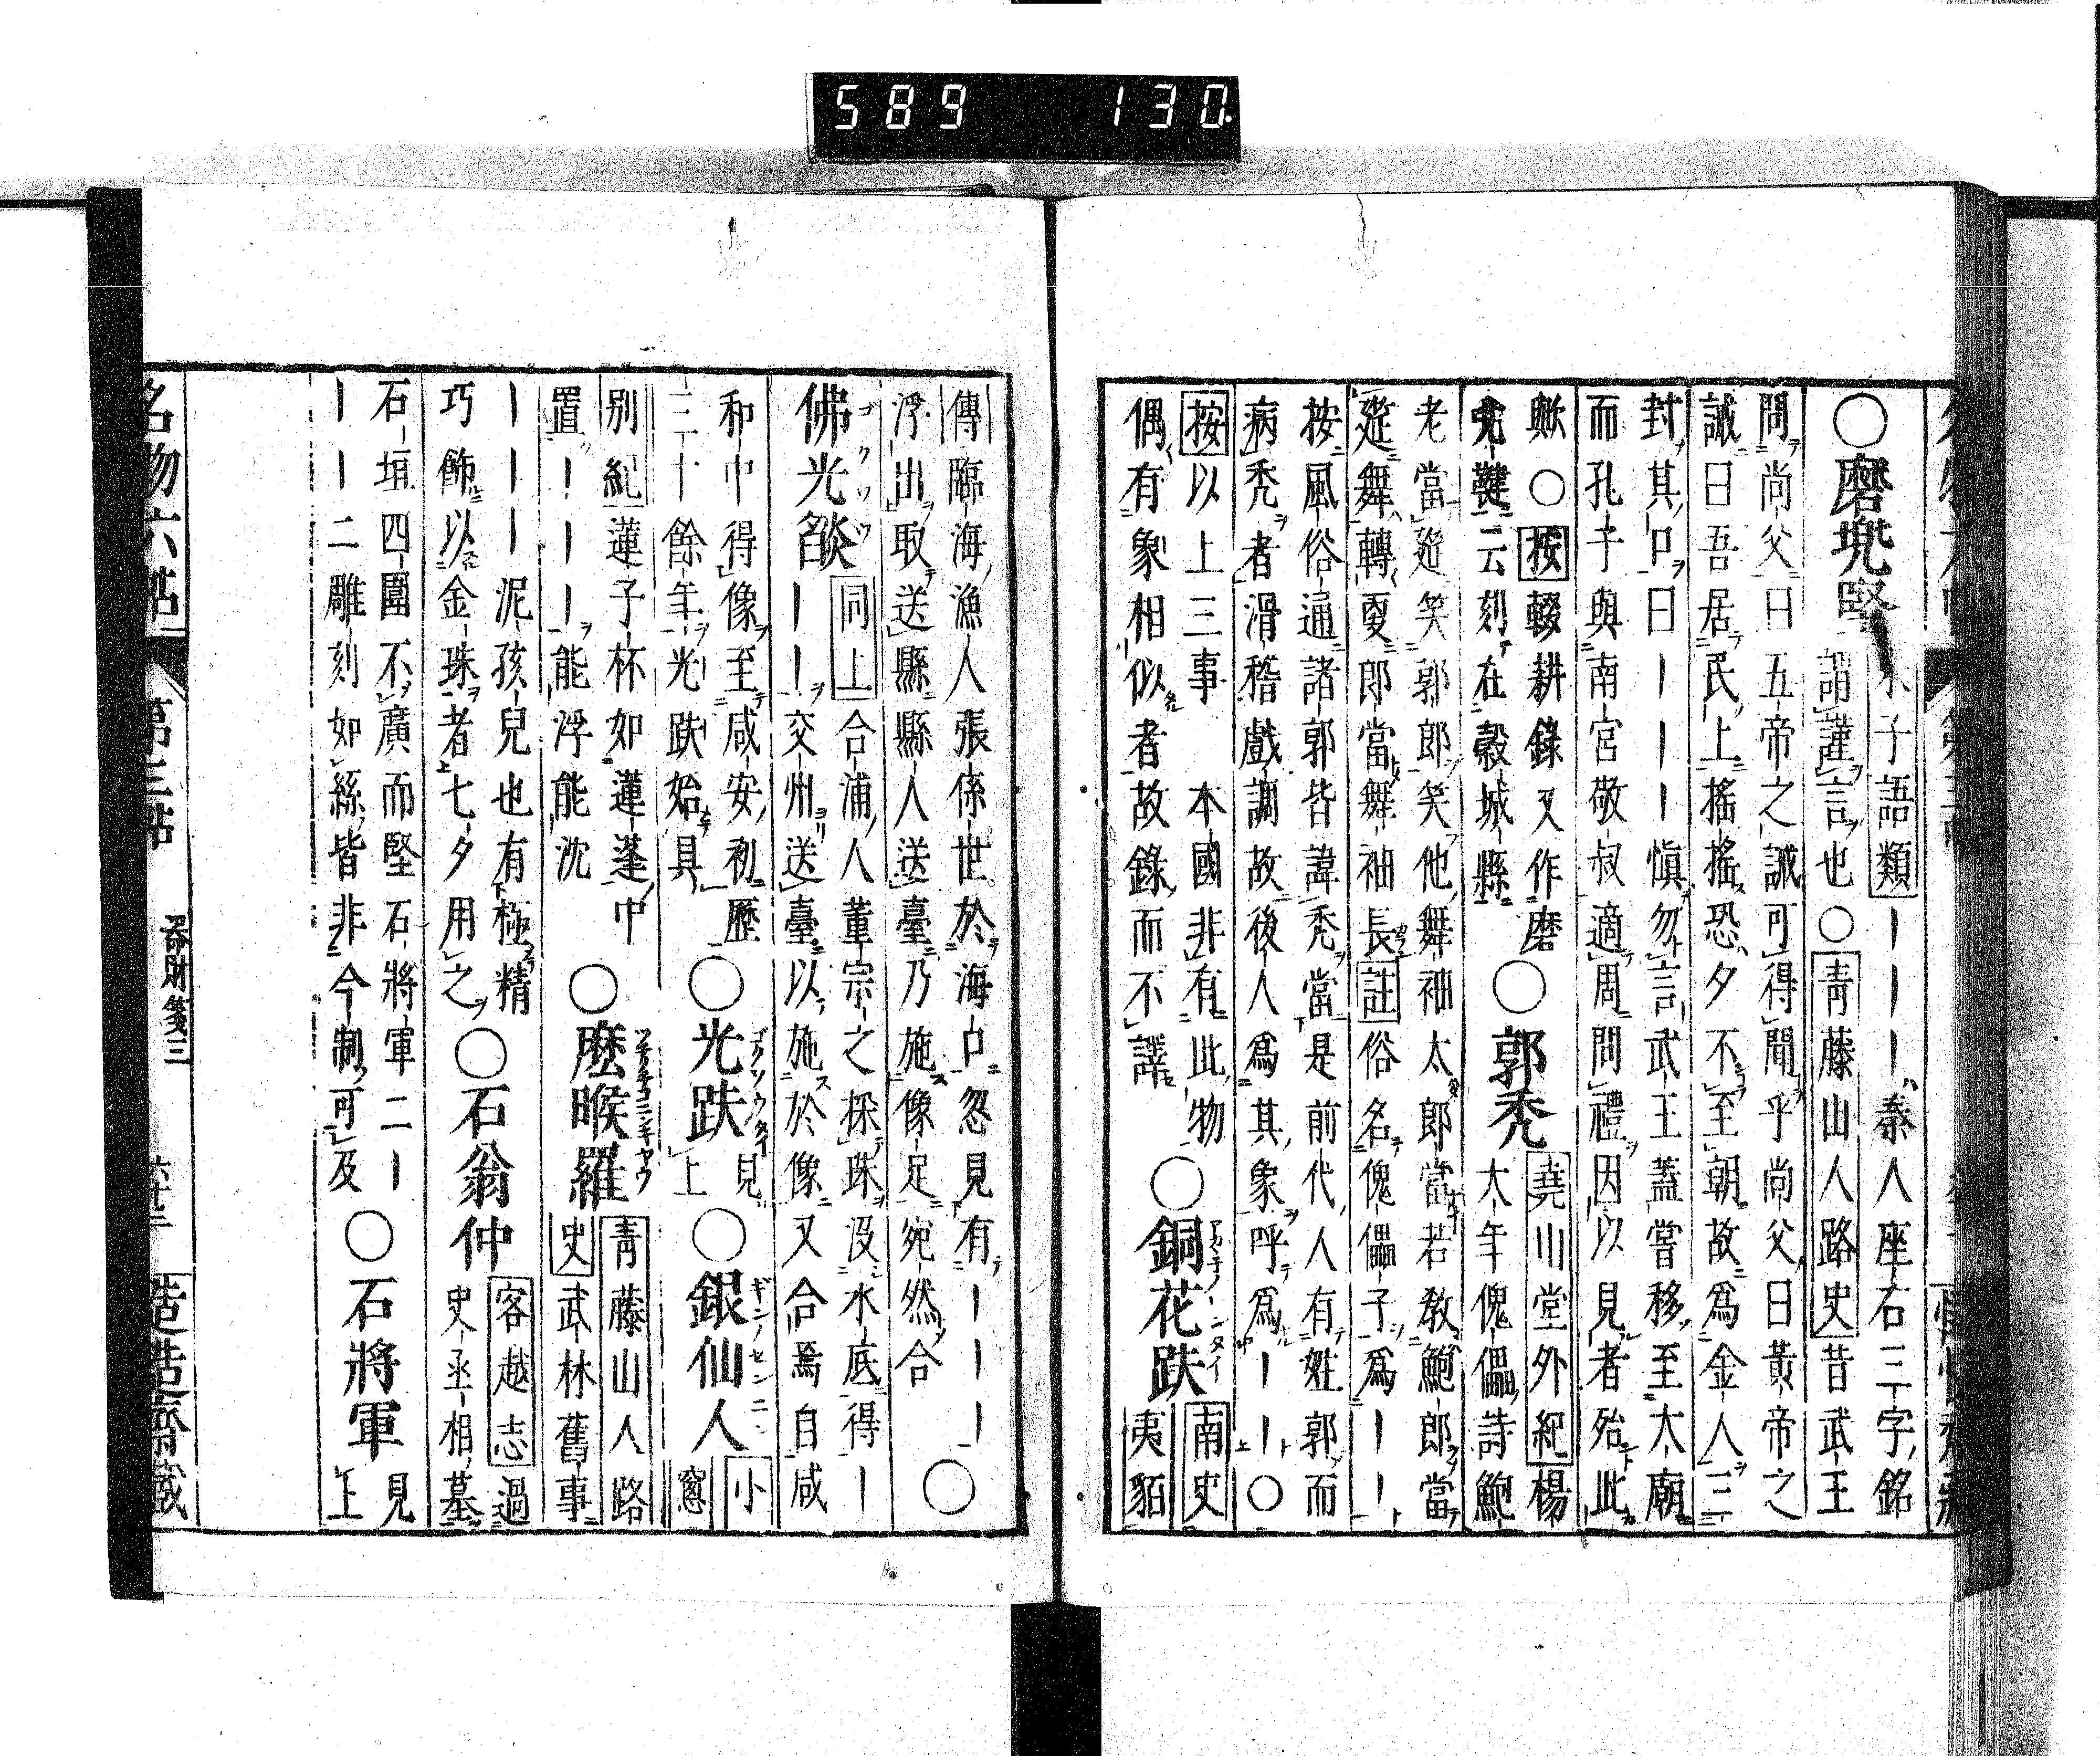 589 130
○磨兜堅
子語類｜｜｜秦人座右三字銘
謂謹言也○青藤山人路史昔武王
問尚父曰五帝之誡可得聞乎尚父曰黃帝之
誡曰吾居民上搖搖恐夕不至朝故爲金人三
封其口曰｜｜｜愼勿言武王蓋嘗移至太廟
而孔子與南宮敬叔適周問禮因以見者殆此
歟○按輟耕錄又作磨
兜鞬云刻在穀城縣
○郭禿
堯山堂外紀楊
大年傀儡詩鮑
老當筵笑郭郎笑他舞袖太郎當若教鮑郎當
筵舞轉更郎當舞袖長註俗名傀儡子爲｜｜
按風俗通諸郭皆諱禿當是前代人有姓郭而
病禿者滑稽戲調故後人爲其象呼爲｜｜○
按以上三事
本國非有此物
偶有象相似者故錄而不譯
○銅花趺
南史
夷貊
傳臨海漁人張係世於海口忽見有｜｜｜
浮出取送縣縣人送臺乃施像足宛然合
○
佛光燄
同上合浦人董宗之採珠沒水底得｜
｜｜交州送臺以施於像又合焉自咸
和中得像至咸安初歷
三十餘年光趺始具
○光趺
見
上
○銀仙人
小
窻
別紀蓮子杯如蓮蓬中
置｜｜｜能浮能沈
○麽㬋羅
青藤山人路
史武林舊事
｜｜｜泥孩兒也有極精
巧飾以金珠者七夕用之
○石翁仲
客越志過
史丞相墓
石垣四圍不廣而堅石將軍二｜
｜｜二雕刻如絲皆非今制可及
○石將軍
見
上
名物六帖
第三帖
器財箋三